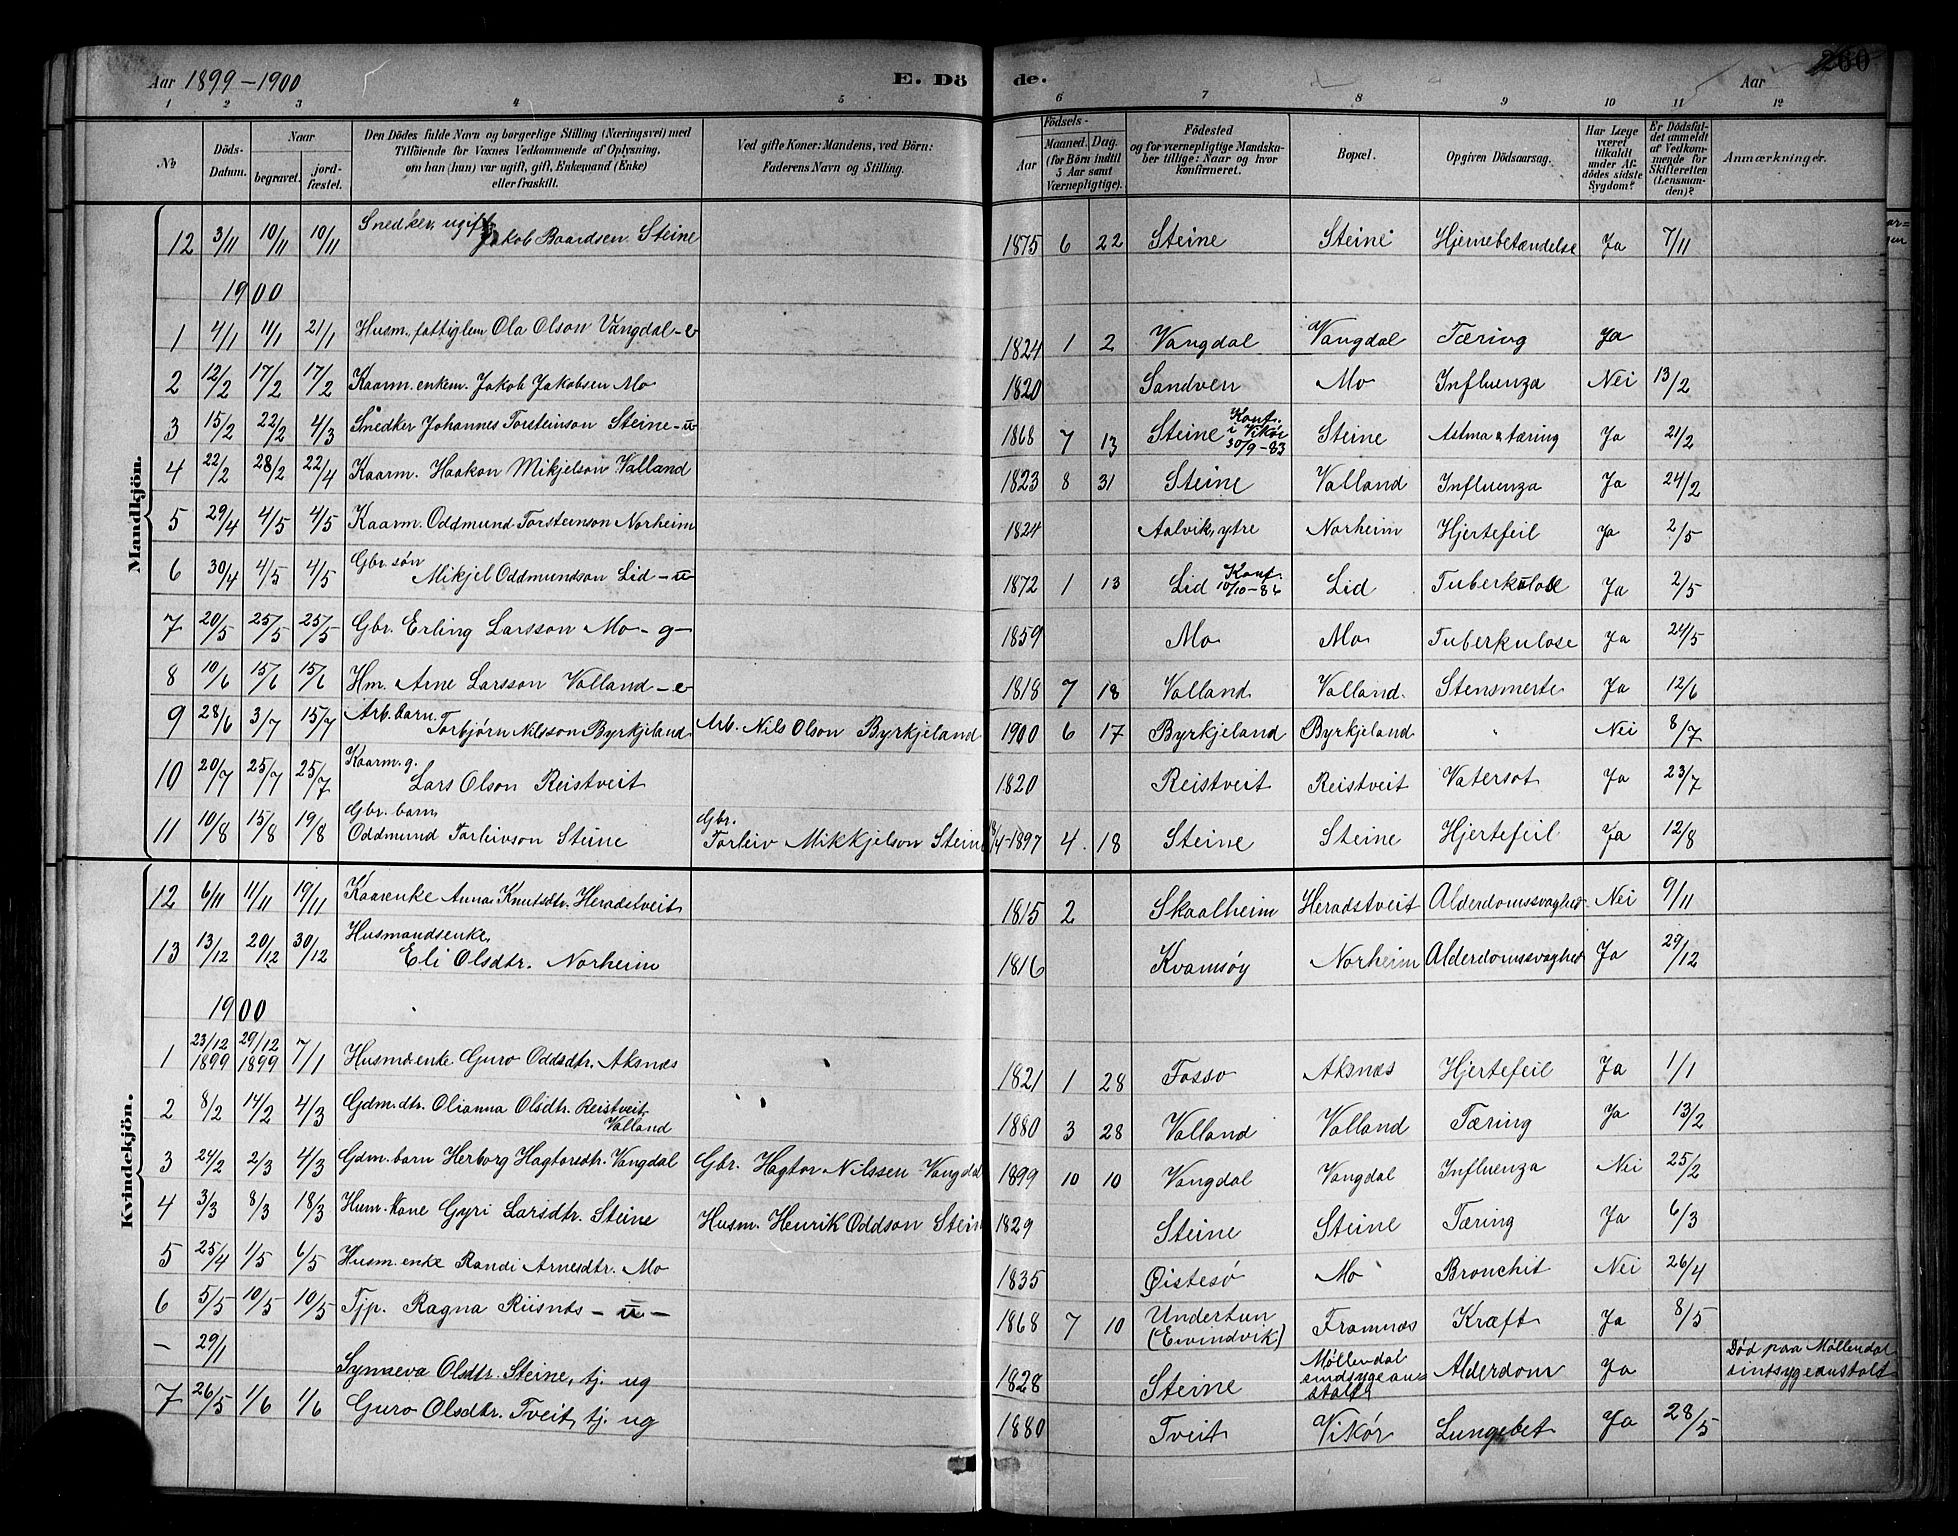 Aar 1899–1900 E. Dö de. Aar 260
1 2 3 4 5 6 7 8 9 10 11 12
No
Döds-Datum.
Naar
begravet.
jordfæstet.
Den Dödes fulde Navn og borgerlige Stilling (Næringsvei) med
Tilföiende for Voxnes Vedkommende af Oplysning,
om han (hun) var ugift, gift, Enkemand (Enke)
eller fraskilt.
Ved gifte Koner: Mandens, ved Börn:
Faderens Navn og Stilling.
Födsels-
Aar
Maaned. Dag.
(for Börn indtil
5 Aar samt
Værnepligtige).
Födested
og for værnepligtige Mandska-
ber tillige: Naar og hvor
konfirmeret.
Bopæl.
Opgiven Dödsaarsag.
Har Læge
været
tilkaldt
under Af-
dödes sidste
Sygdom?
Er Dödsfal-
det anmeldt
af Vedkom-
mende for
Skifteretten
(Lensman-
den)?
Anmærkninger.
Mandkjön.
12 3/11 10/11 10/11 Snedker, ugift Jakob Baardsen Steine 1875 6 22 Steine Steine Hjernebetændelse Ja 7/11
1900
1 4/1 11/1 21/1 Husm., fattiglem Ola Olson Vangdal – e 1824 1 2 Vangdal Vangdal Tæring Ja
2 12/2 17/2 17/2 Kaarm. enkem. Jakob Jakobsen Mo 1820 Sandven Mo Influenza Nei 13/2
3 15/2 22/2 4/3 Snedker Johannes Torsteinson Steine – u 1868 7 13 Steine Konf. i Vikør 30/9–83 Steine Astma & tæring Ja 21/2
4 22/2 28/2 22/4 Kaarm. Haakon Mikjelson Valland 1823 8 31 Steine Valland Influenza Ja 24/2
5 29/4 4/5 4/5 Kaarm. Oddmund Torsteinson Norheim 1824 Aalvik, ytre Norheim Hjertefeil Ja 2/5
6 30/4 4/5 4/5 Gbr. søn Mikjel Oddmundson Lid – u 1872 1 13 Lid Konf. 10/10–86 Lid Tuberkulose Ja 2/5
7 20/5 25/5 25/5 Gbr. Erling Larsson Mo – g – 1859 Mo Mo Tuberkulose Ja 24/5
8 10/6 15/6 15/6 Hm. Arne Larsson Valland – e 1818 7 18 Valland Valland. Stensmerte Ja 12/6
9 28/6 3/7 15/7 Arb. barn. Torbjørn Nilsson Byrkjeland Arb. Nils Olson Byrkjeland 1900 6 17 Byrkjeland Byrkjeland " Nei 8/7
10 20/7 25/7 25/7 Kaarm. g. Lars Olson Reistveit 1820 Reistveit Reistveit Vatersot Ja 23/7
11 10/8 15/8 19/8 Gbr. barn Oddmund Torleivson Steine Gbr. Torleiv Mikkjelson Steine 18/4–1897 4. 18 Steine Steine Hjertefeil Ja 12/8
Kvindekjön.
12 6/11 11/11 19/11 Kaarenke Anna Knutsdtr. Heradstveit 1815 2 Skaalheim Heradstveit Alderdomssvaghed Nei 9/11
13 13/12 20/12 30/12 Husmandsenke, Eli Olsdtr. Norheim 1816 Kvamsøy Norheim Alderdomssvaghed Ja 29/12
1900
1 23/12 1899 29/12 1899 7/1 Husmdenke Guro Oddsdtr. Aksnes 1821 1 28 Fosso Aksnæs Hjertefeil Ja 1/1
2 8/2 14/2 4/3 Gdm. dtr. Olianna Olsdtr. Reistveit Valland 1880 3 28 Valland Valland Tæring Ja 13/2
3 24/2 2/3 4/3 Gdm. barn Herborg Hagtorsdtr. Vangdal Gbr. Hagtor Nilssen Vangdal 1899 10 10 Vangdal Vangdal Influenza Nei 25/2
4 3/3 8/3 18/3 Husm. kone Gyri Larsdtr. Steine Husm. Henrik Oddson Stein 1829 Steine Steine Tæring Ja 6/3
5 25/4 1/5 6/5 Husm. enke Randi Arnesdtr. Mo 1835 Øistesø Mo Bronchit Nei 26/4
6 5/5 10/5 10/5 Tjp. Ragna Riisnes – u – 1868 7 10 Undertun (Eivindvik) Framnæs Kræft Ja 8/5
– 29/1 Synneva Olsdtr. Steine, tj. ug 1828 Steine Møllendal sindsygeanstalt Alderdom Ja Død paa Møllendal sindsygeanstalt
7 26/5 1/6 1/6 Guro Olsdtr. Tveit, tj. ug 1880 Tveit Vikør Lungebet Ja 28/5